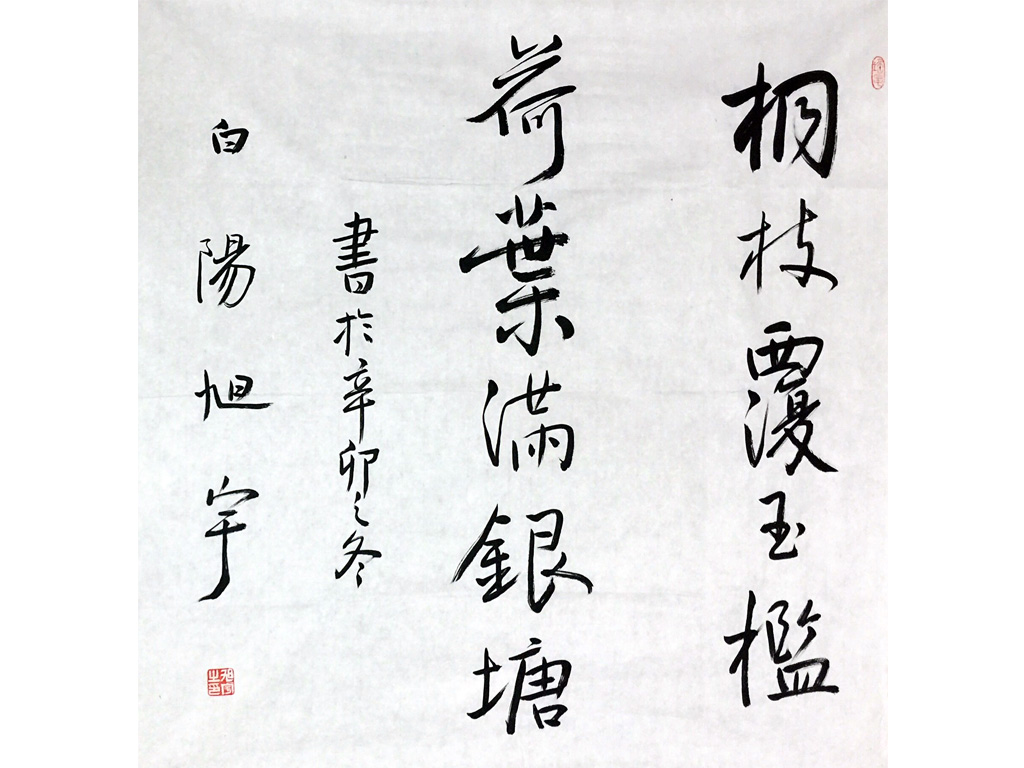 桐枝覆玉檻
荷葉滿銀塘
書於辛卯之冬
白陽旭宇
旭宇之印